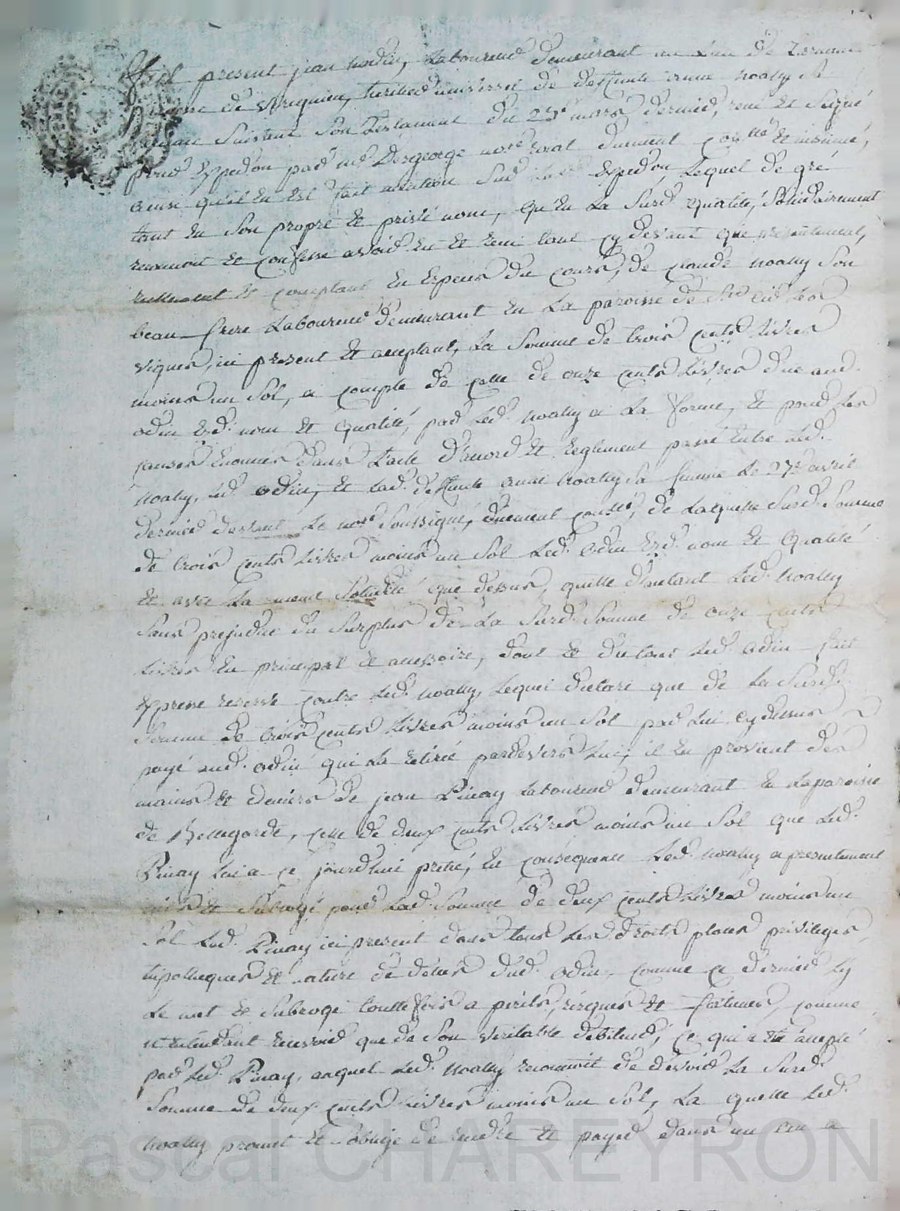 present jean odin, Laboureur demeurant au Lieu de
de heritier universel de deffunte anne noally
suivant Son testament du 25e mars dernier, receu et Signé
pour Expedon par me Desgeorge nore royal dument conllé et insinué,
ainsi qu'il en Est fait mention Sur Expedon Lequel de gré
tant en Son propre et privé nom, qu'en La Surd. qualité, Solidairement
reconnoit et confesse avoir eu et receu tant cy devant que presentement,
reellement et comptant En Especes du cours, de claude noally Son
beau frere Laboureur demeurant En La paroisse de St Les
vignes, ici present et acceptant, La Somme de trois cents Livres
moins un Sol, a compte de celle de onze cents Livres due aud.
odin Ezd. nom et qualité, par Led. noally a La forme, et pour Les
causes Enoncées dans Lacte d'accord et reglement passé Entre Led.
noally, Led. odin, et Lad. deffunte anne noally Sa femme Le 27e avril
dernier devant Le nore Soussigné, duement conllé, de Laquelle Surd. Somme
de trois cents Livres moins un Sol Led. odin Ezd. nom et qualité
Et avec La meme Solidité que dessus, quitte d'autant Led. noally
Sans prejudice du Surplus de La Surd. Somme de onze cents
Livres En principal et accessoire, dont et du tout Led. odin fait
Expresse reserve contre Led. noally, Lequel declare que de La Surd.
Somme de trois cents Livres moins un Sol par Lui cydessus
payé aud. odin qui La retirée pardevers Lui, il En provient des
mains et deniers de jean Pinay Laboureur demeurant En La paroisse
de Bellegarde, celle de deux cents Livres moins un Sol que Led.
Pinay Lui a ce jourdhui preté, En consequence Led. noally a presentement
mis et Subrogé pour Lad. Somme de deux cents Livres moins un
Sol Led. Pinay ici present dans tous Les droits places privileges,
hipotheques et nature de dettes dud. odin, comme ce dernier Ly
Le met et Subroge touttefois a perils, risques et fortunes, comme
n'entendant recevoir que de Son veritable debiteur, ce qui a été accepté
par Led. Pinay, auquel Led. noally reconnoit de devoir La Surd.
Somme de deux cents Livres moins un Sol, La quelle Led.
noally promet et S'oblige de rendre et payer dans un
Pascal CHAREYRON